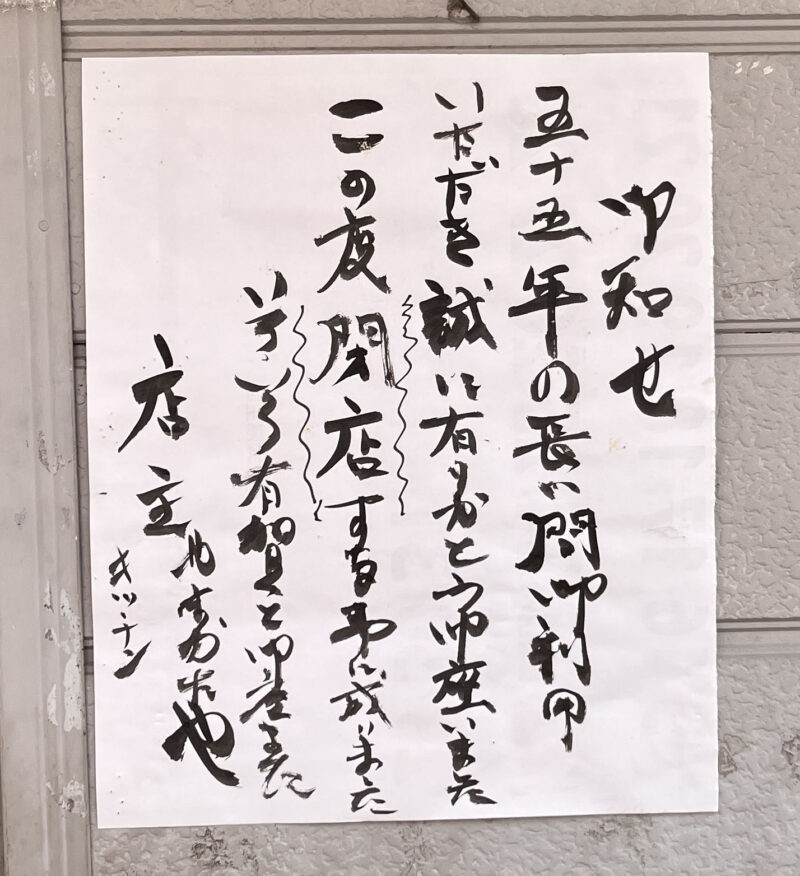 御知せ
五十五年の長い間御利用
いただき誠に有りがとう御座いました
この度閉店する事に成りました
いろいろ有賀と御座ました
店主
キッチン